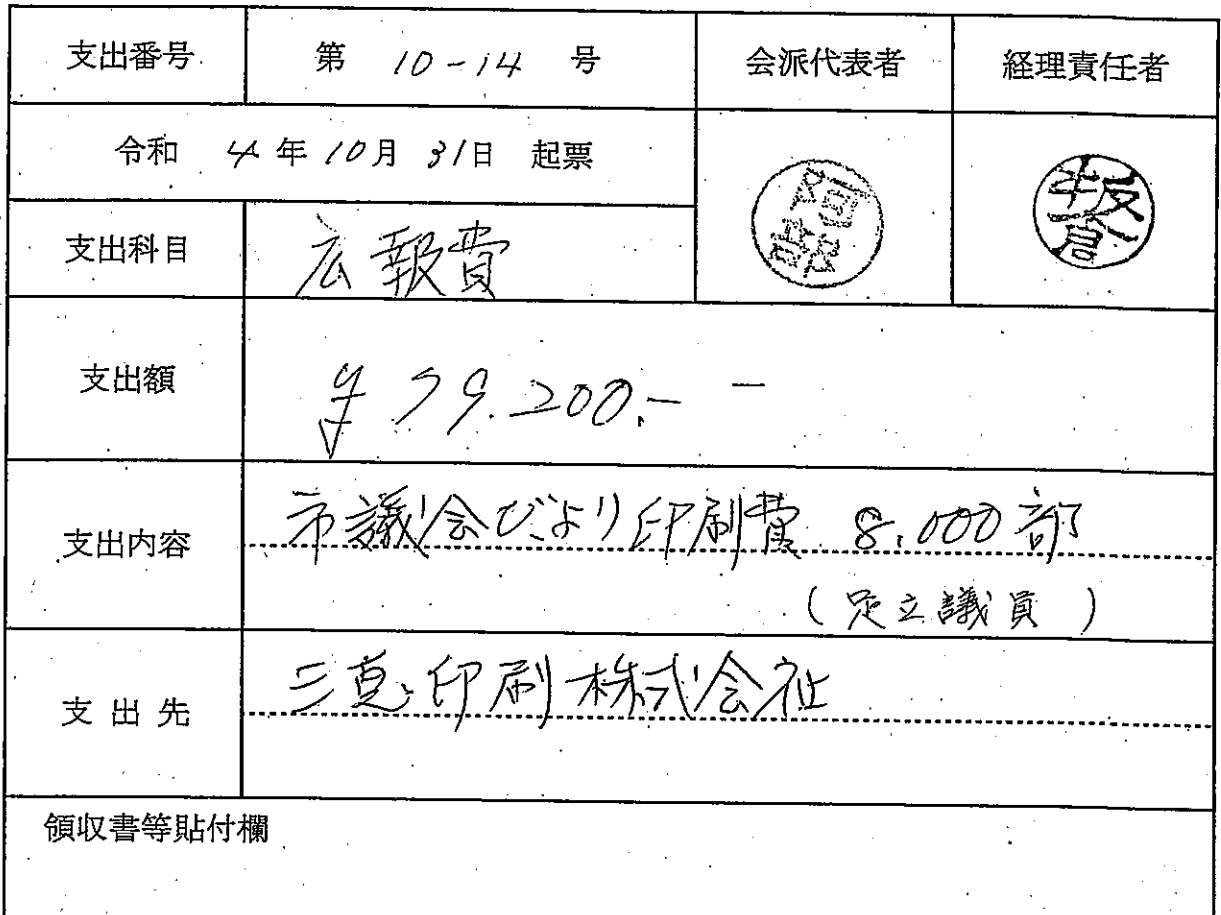 支出番号 第 10-14 号 会派代表者 経理責任者
令和 4年10月31日 起票
阿部
坂倉
支出科目 広報費
支出額 ¥79.200.-
支出内容 市議会だより印刷費 8.000部
(足立議員)
支出先 三恵印刷株式会社
領収書等貼付欄